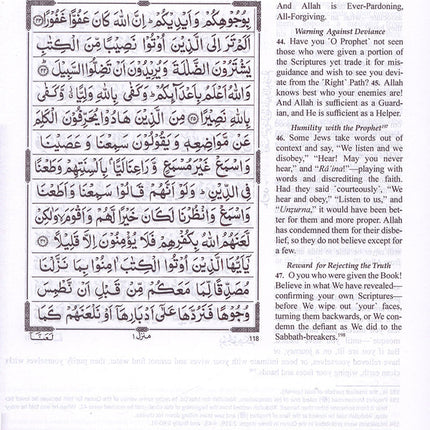 بِوُجُوهِكُمْ وَأَيْدِيكُمْ ۗ إِنَّ اللَّهَ كَانَ عَفُوًّا غَفُورًا ﴿٤٣﴾
أَلَمْ تَرَ إِلَى الَّذِينَ أُوتُوا نَصِيبًا مِّنَ الْكِتَٰبِ
يَشْتَرُونَ الضَّلَٰلَةَ وَيُرِيدُونَ أَن تَضِلُّوا السَّبِيلَ ﴿٤٤﴾
وَاللَّهُ أَعْلَمُ بِأَعْدَائِكُمْ ۚ وَكَفَىٰ بِاللَّهِ وَلِيًّا وَكَفَىٰ
بِاللَّهِ نَصِيرًا ﴿٤٥﴾ مِّنَ الَّذِينَ هَادُوا يُحَرِّفُونَ الْكَلِمَ
عَن مَّوَاضِعِهِ وَيَقُولُونَ سَمِعْنَا وَعَصَيْنَا
وَاسْمَعْ غَيْرَ مُسْمَعٍ وَرَاعِنَا لَيًّا بِأَلْسِنَتِهِمْ وَطَعْنًا
فِي الدِّينِ ۚ وَلَوْ أَنَّهُمْ قَالُوا سَمِعْنَا وَأَطَعْنَا
وَاسْمَعْ وَانظُرْنَا لَكَانَ خَيْرًا لَّهُمْ وَأَقْوَمَ وَلَٰكِن
لَّعَنَهُمُ اللَّهُ بِكُفْرِهِمْ فَلَا يُؤْمِنُونَ إِلَّا قَلِيلًا ﴿٤٦﴾
يَٰأَيُّهَا الَّذِينَ أُوتُوا الْكِتَٰبَ آمِنُوا بِمَا نَزَّلْنَا
مُصَدِّقًا لِّمَا مَعَكُم مِّن قَبْلِ أَن نَّطْمِسَ
وُجُوهًا فَنَرُدَّهَا عَلَىٰ أَدْبَارِهَا أَوْ نَلْعَنَهُمْ كَمَا
منزل
118
And Allah is Ever-Pardoning,
All-Forgiving.
Warning Against Deviance
44. Have you ˹O Prophet˺ not seen
those who were given a portion of
the Scriptures yet trade it for mis-
guidance and wish to see you devi-
ate from the ˹Right˺ Path? 45. Allah
knows best who your enemies are!
And Allah is sufficient as a Guard-
ian, and He is sufficient as a Helper.
Humility with the Prophet¹⁹⁷
46. Some Jews take words out of
context and say, “We listen and we
disobey,” “Hear! May you never
hear,” and “Râ’ina!”—playing with
words and discrediting the faith.
Had they said ˹courteously˺, “We
hear and obey,” “Listen to us,” and
“Unẓurna,” it would have been bet-
ter for them and more proper. Allah
has condemned them for their disbe-
lief, so they do not believe except for
a few.
Reward for Rejecting the Truth
47. O you who were given the Book!
Believe in what We have revealed—
confirming your own Scriptures—
before We wipe out ˹your˺ faces,
turning them backwards, or We con-
demn the defiant as We did to the
Sabbath-breakers.¹⁹⁸